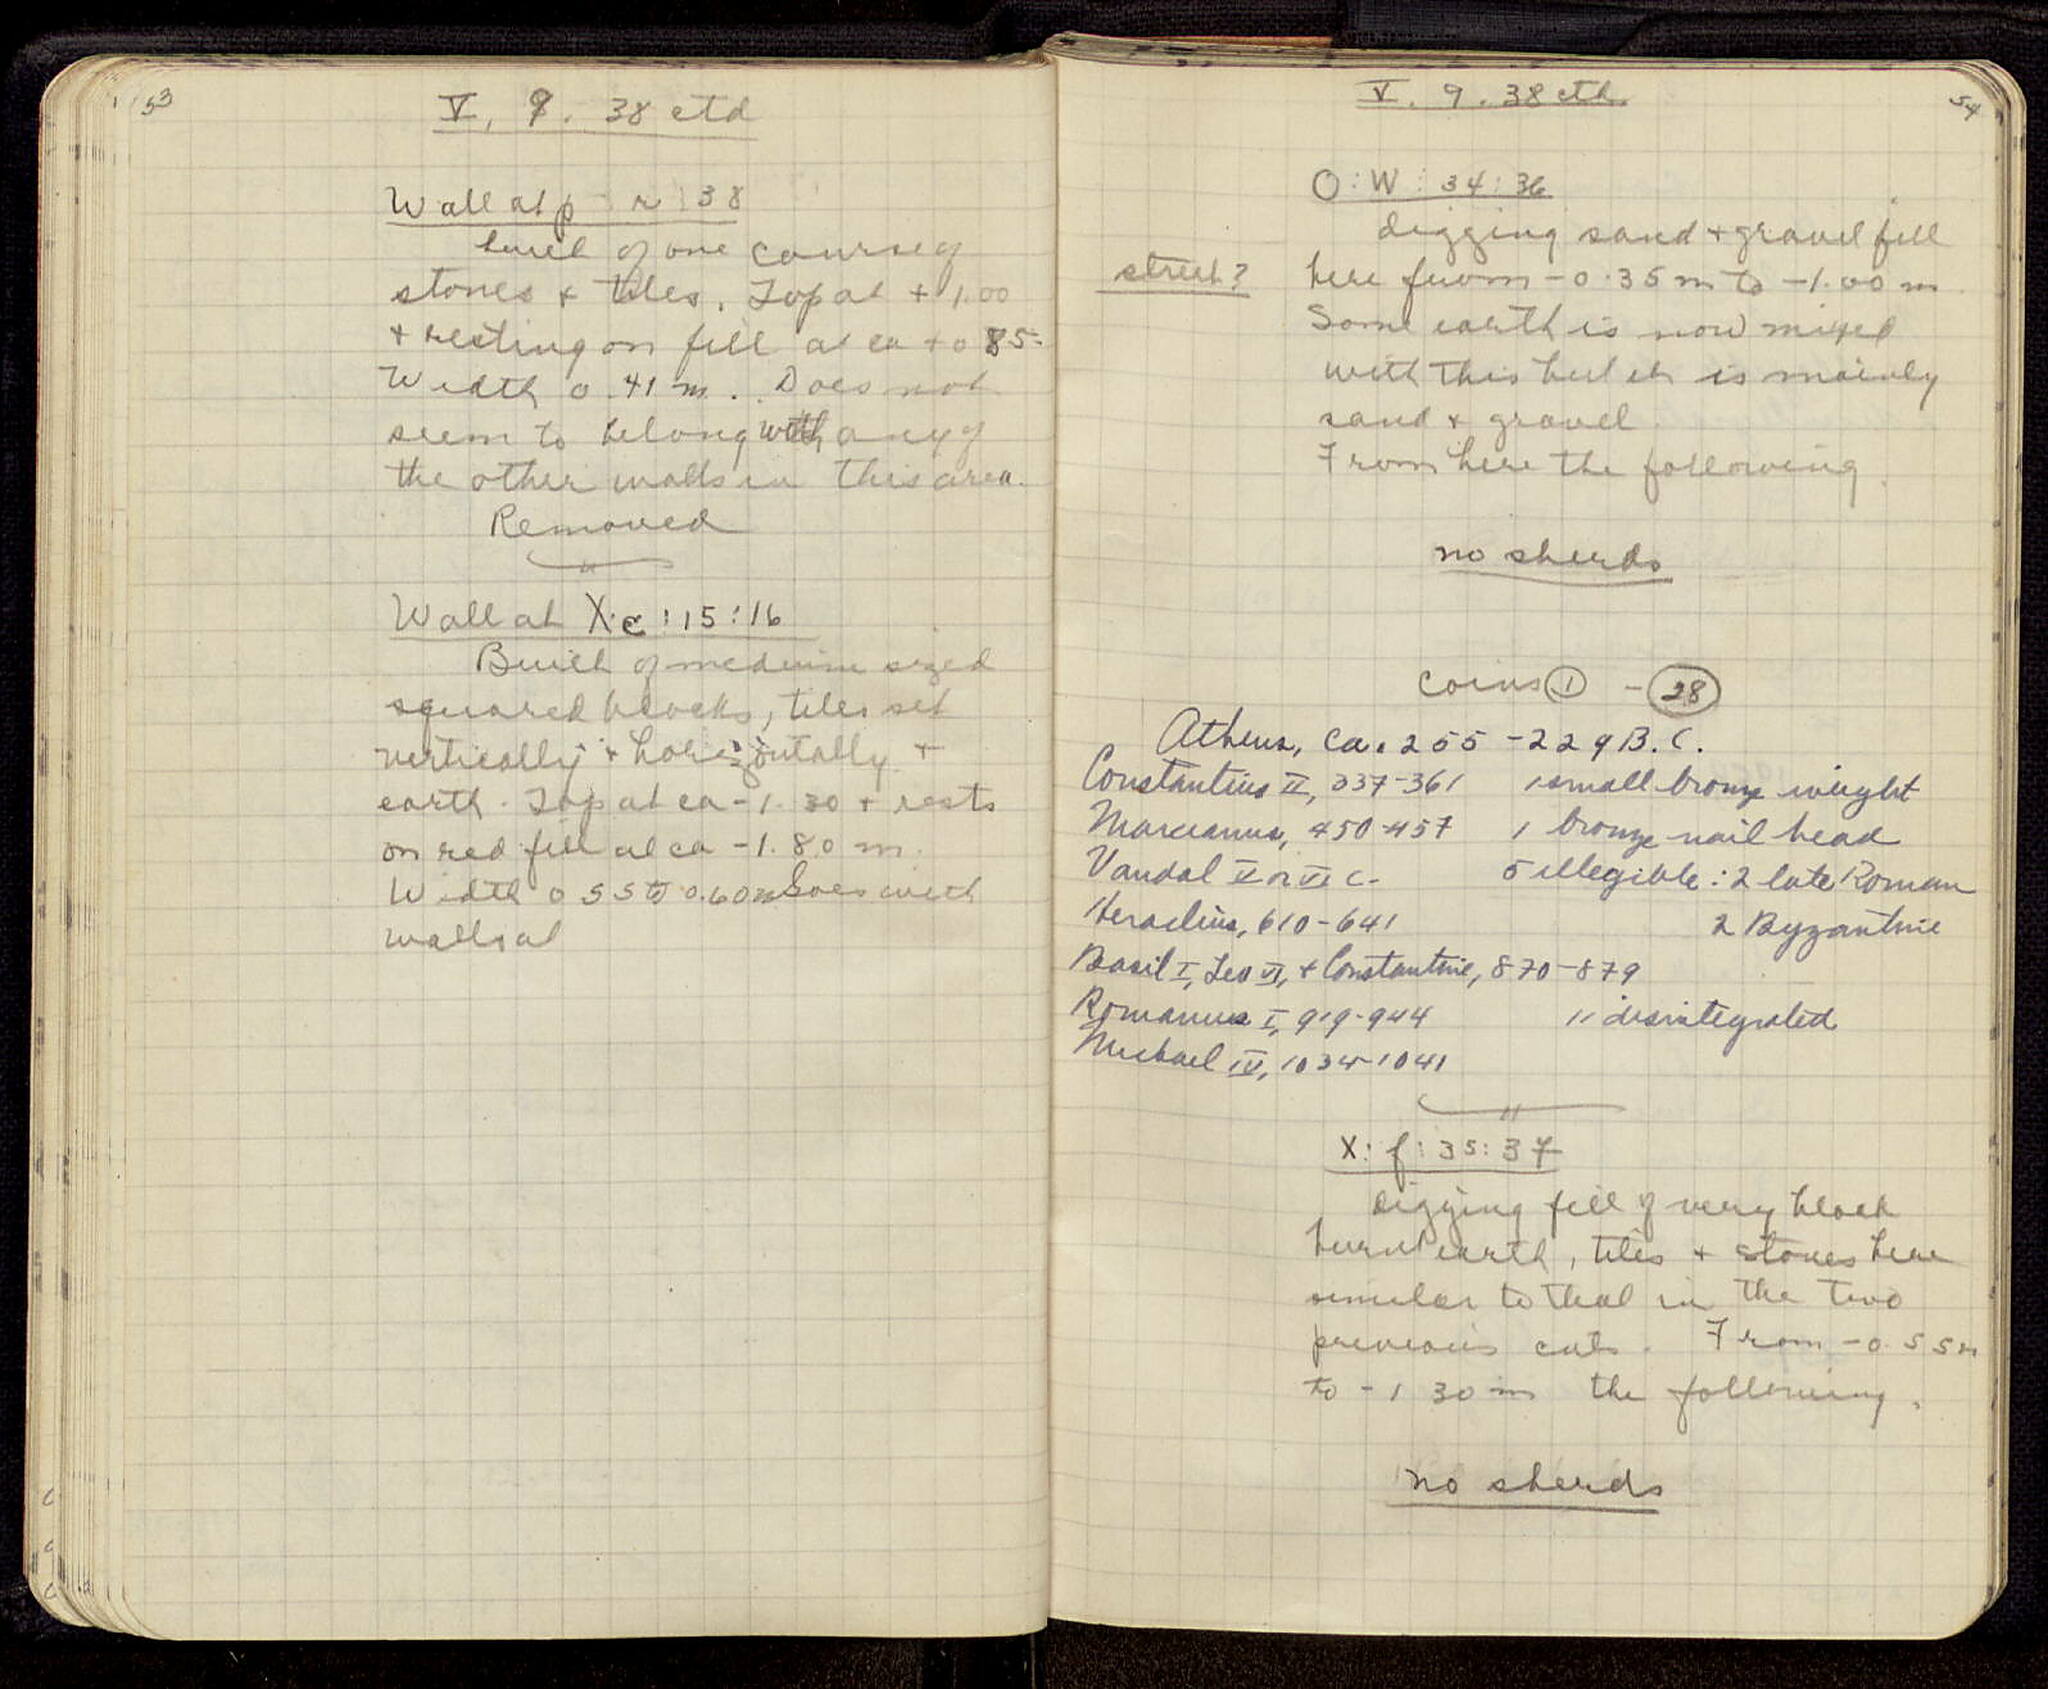 53
V. 9. 38 ctd
Wall at p : r : 38
built of one course of
stones + tiles. Top at + 1.00
+ resting on fill at ca + 0.85-
Width 0.41 m. Does not
seem to belong with any of
the other walls in this area.
Removed
Wall at X:c:15:16
Built of medium sized
squared blocks, tiles set
vertically + horizontally +
earth. Top at ca -1.30 + rests
on red fill at ca -1.80 m.
Width 0.55 to 0.60m Goes with
walls at
54
V. 9. 38 ctd.
O:W:34:36
digging sand + gravel fill
street? here from -0.35 m to -1.00 m
Some earth is now mixed
with this but it is mainly
sand + gravel
From here the following
no sherds
coins 1 - 28
Athens, ca. 255 - 229 B.C.
Constantius II, 337-361 1 small bronze weight
Marcianus, 450-457 1 bronze nail head
Vandal V or VI c. 5 illegible: 2 late Roman
Heraclius, 610-641 2 Byzantine
Basil I, Leo VI, + Constantine, 870-879
Romanus I, 919-944 11 disintegrated
Michael IV, 1034-1041
X:f:35:37
digging fill of very black
burnt earth, tiles + stones here
similar to that in the two
previous cuts. From -0.55m
to -1.30 m the following.
no sherds